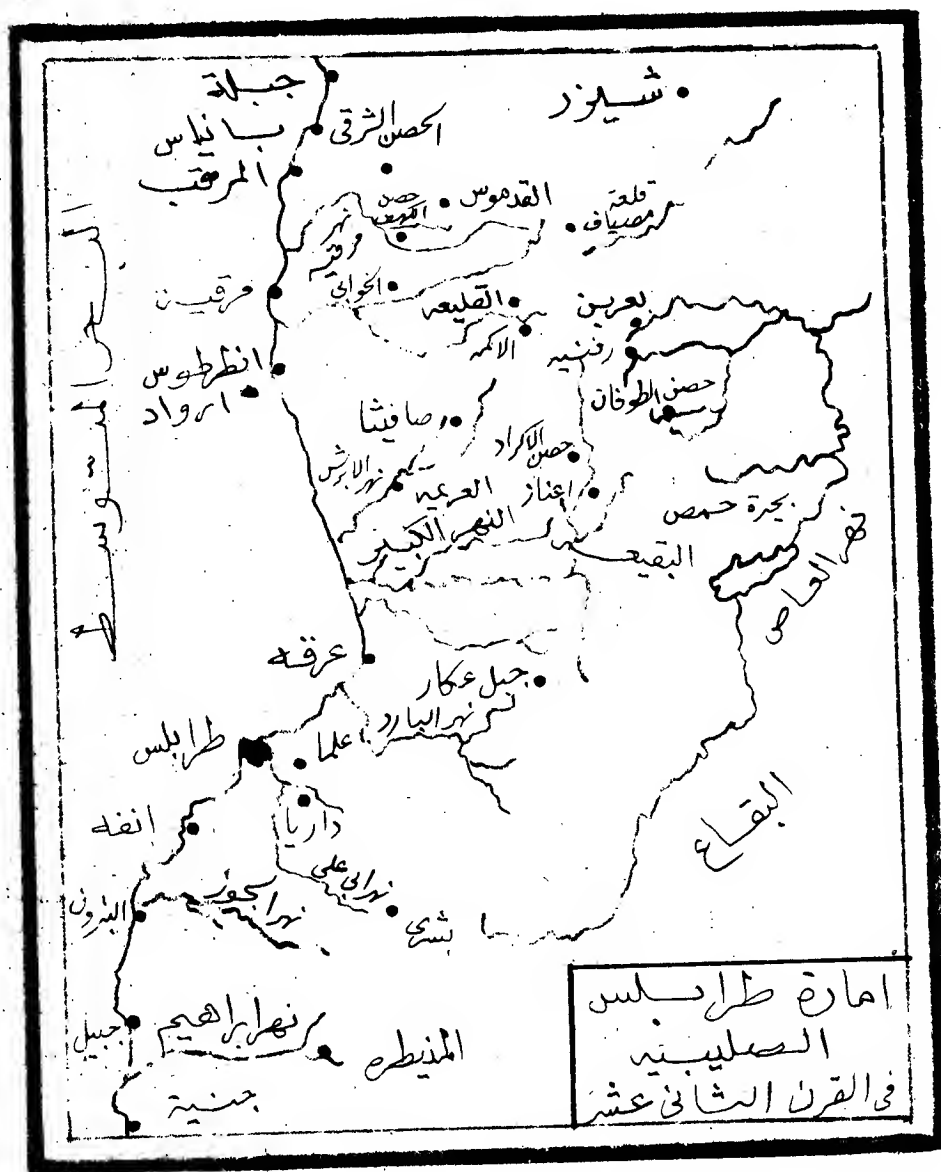 جبلة
شيزر
بانياس
الحصن الشرقى
المرقب
القدموس
حصن
الكهف
قلعة
مصياف
نهر
مرقية
الخوابى
القليعه
بعرين
الاكمه
رفنيه
انطرطوس
ارواد
حصن الطوفان
صافيثا
حصن الاكراد
نهر الابرش
العريمه
اعناز
بحيرة حمص
النهر الكبير
البقيعه
نهر العاص
البحر المتوسط
عرقه
جبل عكار
نهر البارد
طرابلس
علما
داريا
انفه
البقاع
نهر ابى على
نهر الجوز
البترون
بشرى
جبيل
نهر ابراهيم
المنيطره
جنية
امارة طرابلس
الصليبيه
فى القرن الثانى عشر